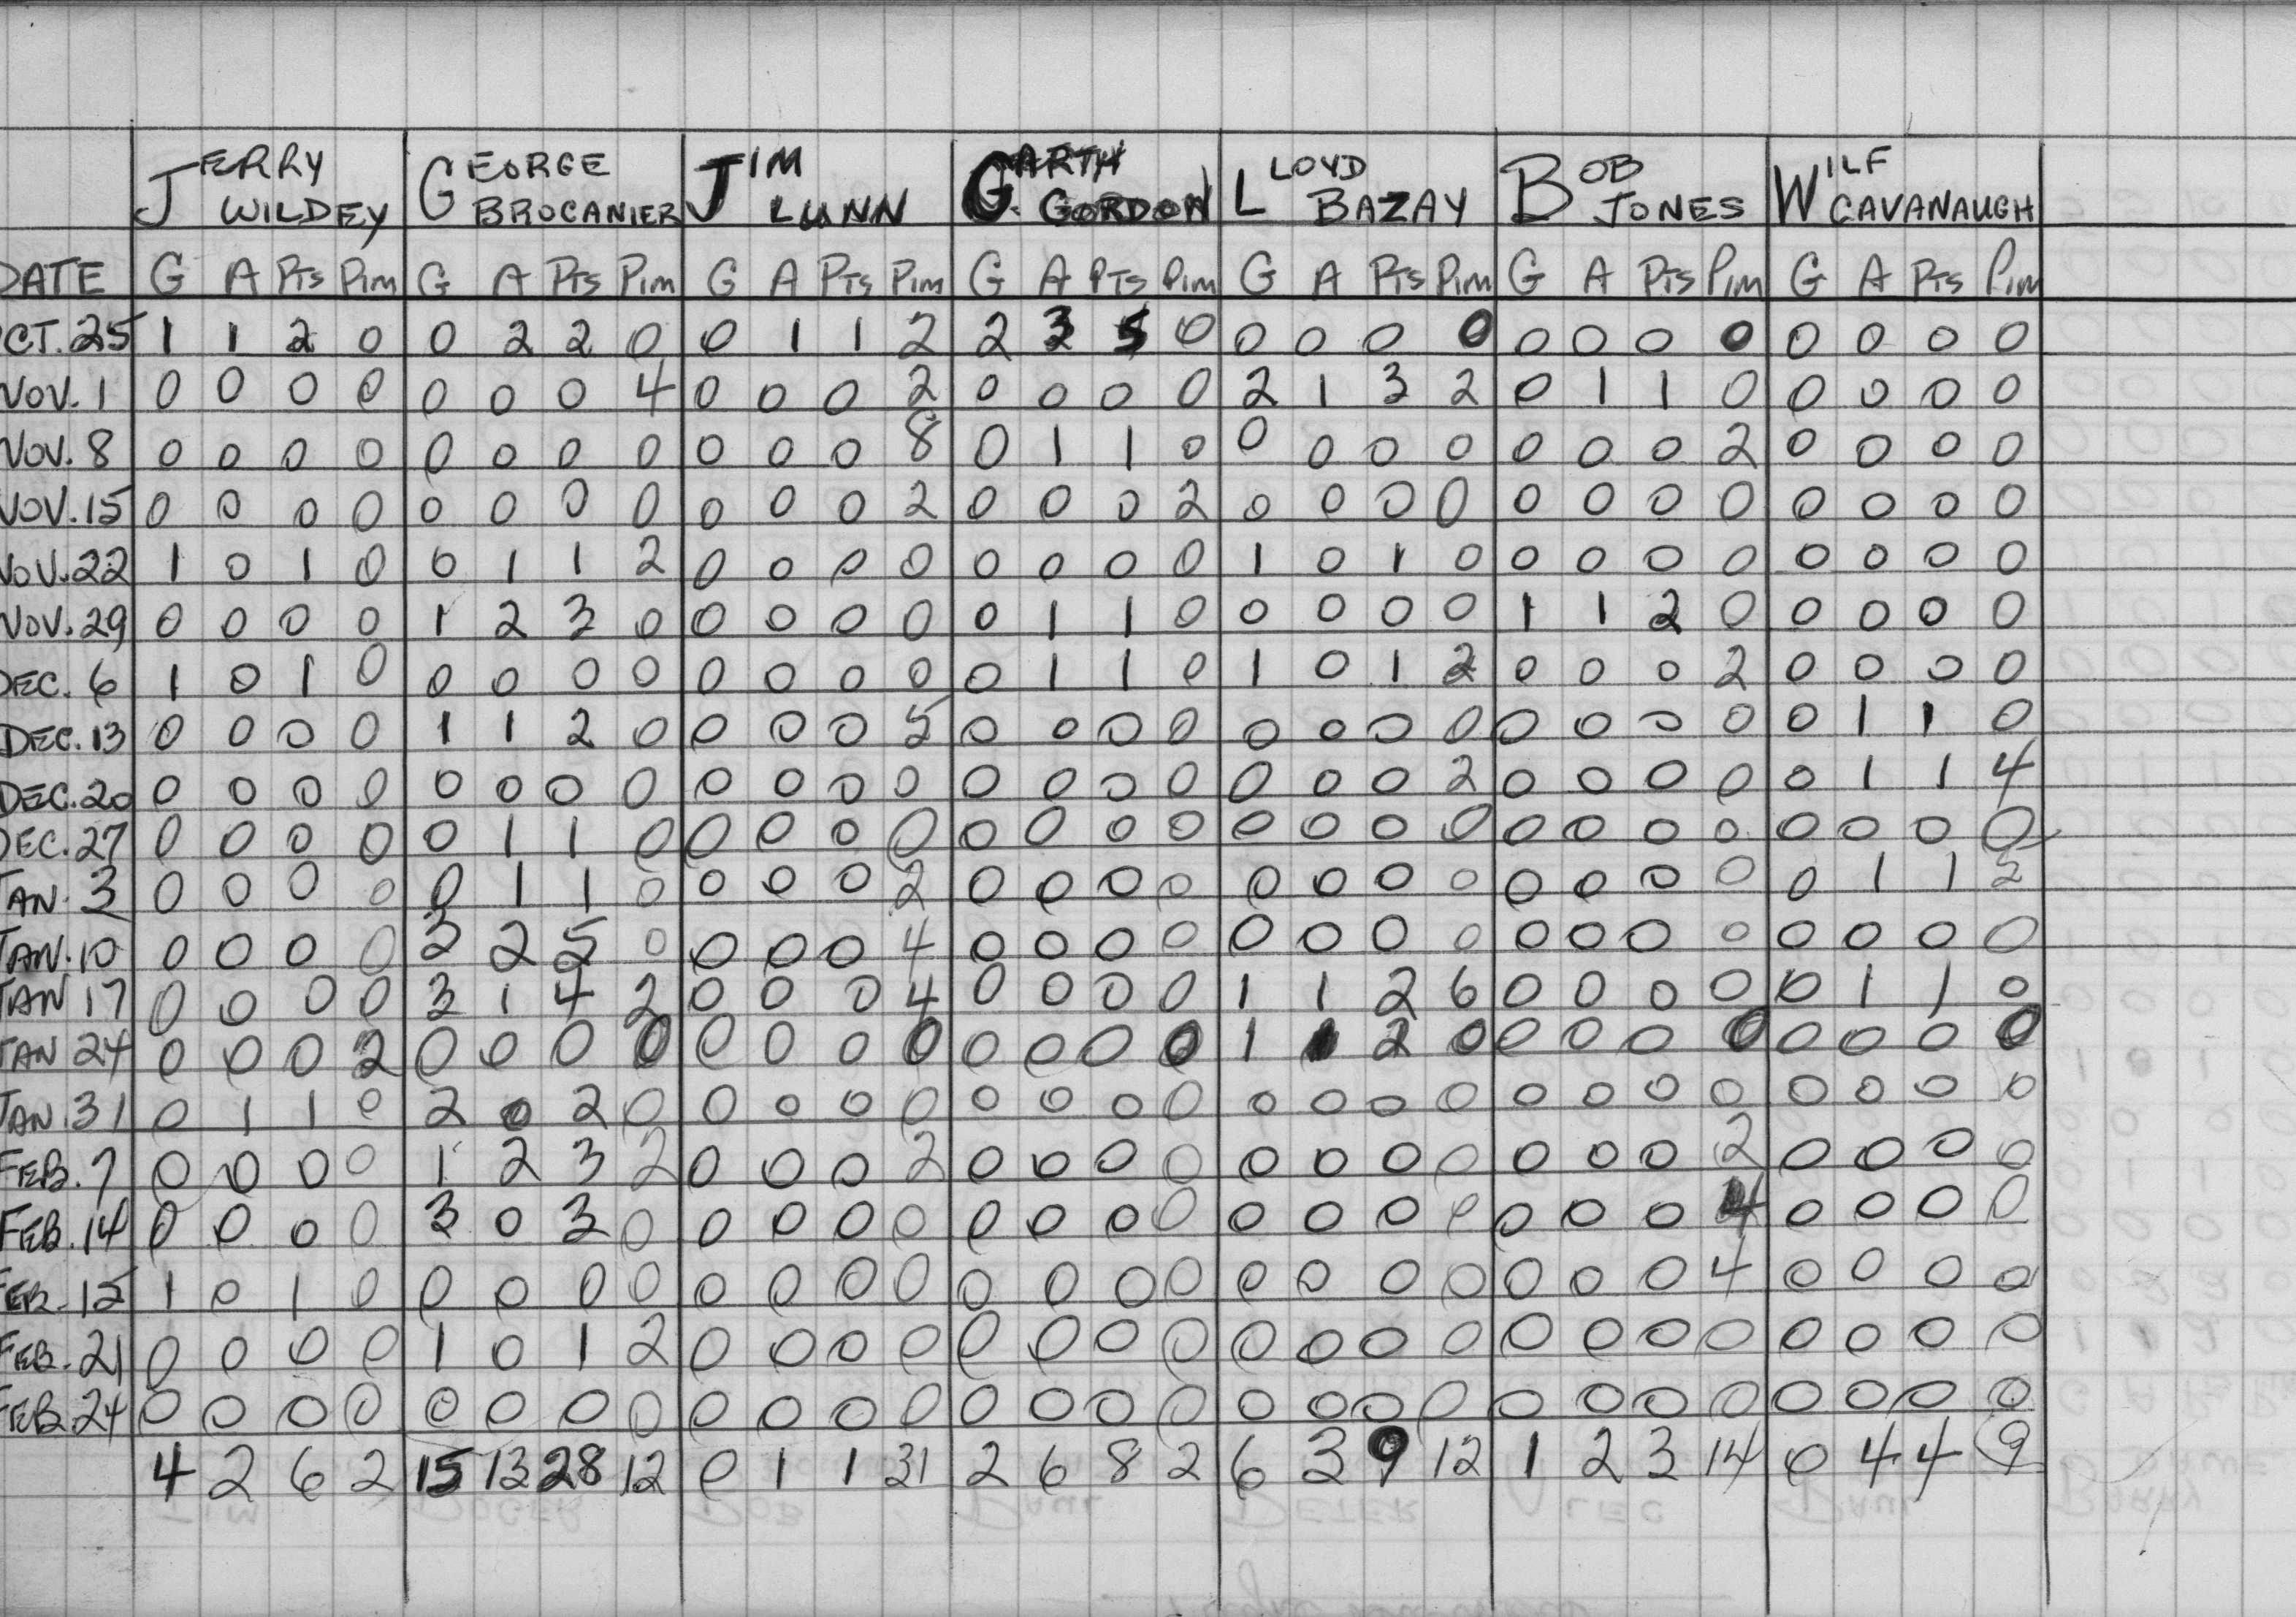 JERRY WILDEY GEORGE BROCANIER JIM LUNN GARTH GORDON LLOYD BAZAY BOB JONES WILF CAVANAUGH
DATE G A PTS PIM G A PTS PIM G A PTS PIM G A PTS PIM G A PTS PIM G A PTS PIM G A PTS PIM
OCT. 25 1 1 2 0 0 2 2 0 0 1 1 2 2 3 5 0 0 0 0 0 0 0 0 0 0 0 0 0
NOV. 1 0 0 0 0 0 0 0 4 0 0 0 2 0 0 0 0 2 1 3 2 0 1 1 0 0 0 0 0
NOV. 8 0 0 0 0 0 0 0 0 0 0 0 8 0 1 1 0 0 0 0 0 0 0 0 2 0 0 0 0
NOV. 15 0 0 0 0 0 0 0 0 0 0 0 2 0 0 0 2 0 0 0 0 0 0 0 0 0 0 0 0
NOV. 22 1 0 1 0 0 1 1 2 0 0 0 0 0 0 0 0 1 0 1 0 0 0 0 0 0 0 0 0
NOV. 29 0 0 0 0 1 2 3 0 0 0 0 0 0 1 1 0 0 0 0 0 1 1 2 0 0 0 0 0
DEC. 6 1 0 1 0 0 0 0 0 0 0 0 0 0 1 1 0 1 0 1 2 0 0 0 2 0 0 0 0
DEC. 13 0 0 0 0 1 1 2 0 0 0 0 5 0 0 0 0 0 0 0 0 0 0 0 0 0 1 1 0
DEC. 20 0 0 0 0 0 0 0 0 0 0 0 0 0 0 0 0 0 0 0 2 0 0 0 0 0 1 1 4
DEC. 27 0 0 0 0 0 1 1 0 0 0 0 0 0 0 0 0 0 0 0 0 0 0 0 0 0 0 0 0
JAN. 3 0 0 0 0 0 1 1 0 0 0 0 2 0 0 0 0 0 0 0 0 0 0 0 0 0 1 1
JAN. 10 0 0 0 0 3 2 5 0 0 0 0 4 0 0 0 0 0 0 0 0 0 0 0 0 0 0 0 0
JAN 17 0 0 0 0 3 1 4 2 0 0 0 4 0 0 0 0 1 1 2 6 0 0 0 0 0 1 1 0
JAN 24 0 0 0 2 0 0 0 0 0 0 0 0 0 0 0 0 1 2 0 0 0 0 0 0 0 0 0
JAN. 31 0 1 1 0 2 0 2 0 0 0 0 0 0 0 0 0 0 0 0 0 0 0 0 0 0 0 0 0
FEB. 7 0 0 0 0 1 2 3 2 0 0 0 2 0 0 0 0 0 0 0 0 0 0 0 2 0 0 0 0
FEB. 14 0 0 0 0 3 0 3 0 0 0 0 0 0 0 0 0 0 0 0 0 0 0 0 4 0 0 0 0
FEB. 15 1 0 1 0 0 0 0 0 0 0 0 0 0 0 0 0 0 0 0 0 0 0 0 4 0 0 0 0
FEB. 21 0 0 0 0 1 0 1 2 0 0 0 0 0 0 0 0 0 0 0 0 0 0 0 0 0 0 0 0
FEB. 24 0 0 0 0 0 0 0 0 0 0 0 0 0 0 0 0 0 0 0 0 0 0 0 0 0 0 0 0
4 2 6 2 15 13 28 12 0 1 1 31 2 6 8 2 6 3 9 12 1 2 3 14 0 4 4 9